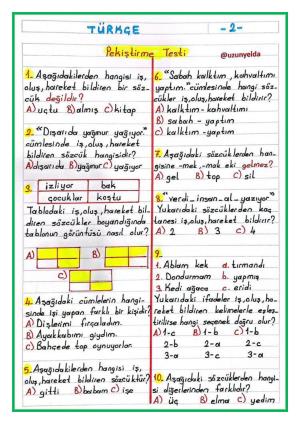 TÜRKÇE -2-
Pekiştirme Testi @uzunyelda
1. Aşağıdakilerden hangisi iş,
oluş, hareket bildiren bir söz-
cük değildir?
A) uçtu B) almış C) kitap
2. "Dışarıda yağmur yağıyor."
cümlesinde iş, oluş, hareket
bildiren sözcük hangisidir?
A) dışarıda B) yağmur C) yağıyor
3. izliyor bak
çocuklar koştu
Tablodaki iş, oluş, hareket bil-
diren sözcükler boyandığında
tablonun görüntüsü nasıl olur?
A) B)
C)
4. Aşağıdaki cümlelerin hangi-
sinde işi yapan farklı bir kişidir?
A) Dişlerimi fırçaladım.
B) Ayakkabımı giydim.
C) Bahçede top oynuyorlar.
5. Aşağıdakilerden hangisi iş,
oluş, hareket bildiren sözcüktür?
A) gitti B) babam C) işe
6. "Sabah kalktım, kahvaltımı
yaptım." cümlesinde hangi söz-
cükler iş, hareket bildirir?
A) kalktım - kahvaltımı
B) sabah - yaptım
C) kalktım - yaptım
7. Aşağıdaki sözcüklerden han-
gisine -mek, -mak eki gelmez?
A) gel B) top C) sil
8. "verdi_insan_al_yazıyor"
Yukarıdaki sözcüklerden kaç
tanesi iş, oluş, hareket bildirir?
A) 2 B) 3 C) 4
9.
1. Ablam kek a. tırmandı
2. Dondurmam b. yapmış
3. Kedi ağaca c. eridi
Yukarıdaki ifadeler iş, oluş, ha-
reket bildiren kelimelerle eşleş-
tirilirse hangi seçenek doğru olur?
A) 1-c B) 1-b C) 1-b
2-b 2-a 2-c
3-a 3-c 3-a
10. Aşağıdaki sözcüklerden hangi-
si diğerlerinden farklıdır?
A) üç B) elma C) yedim